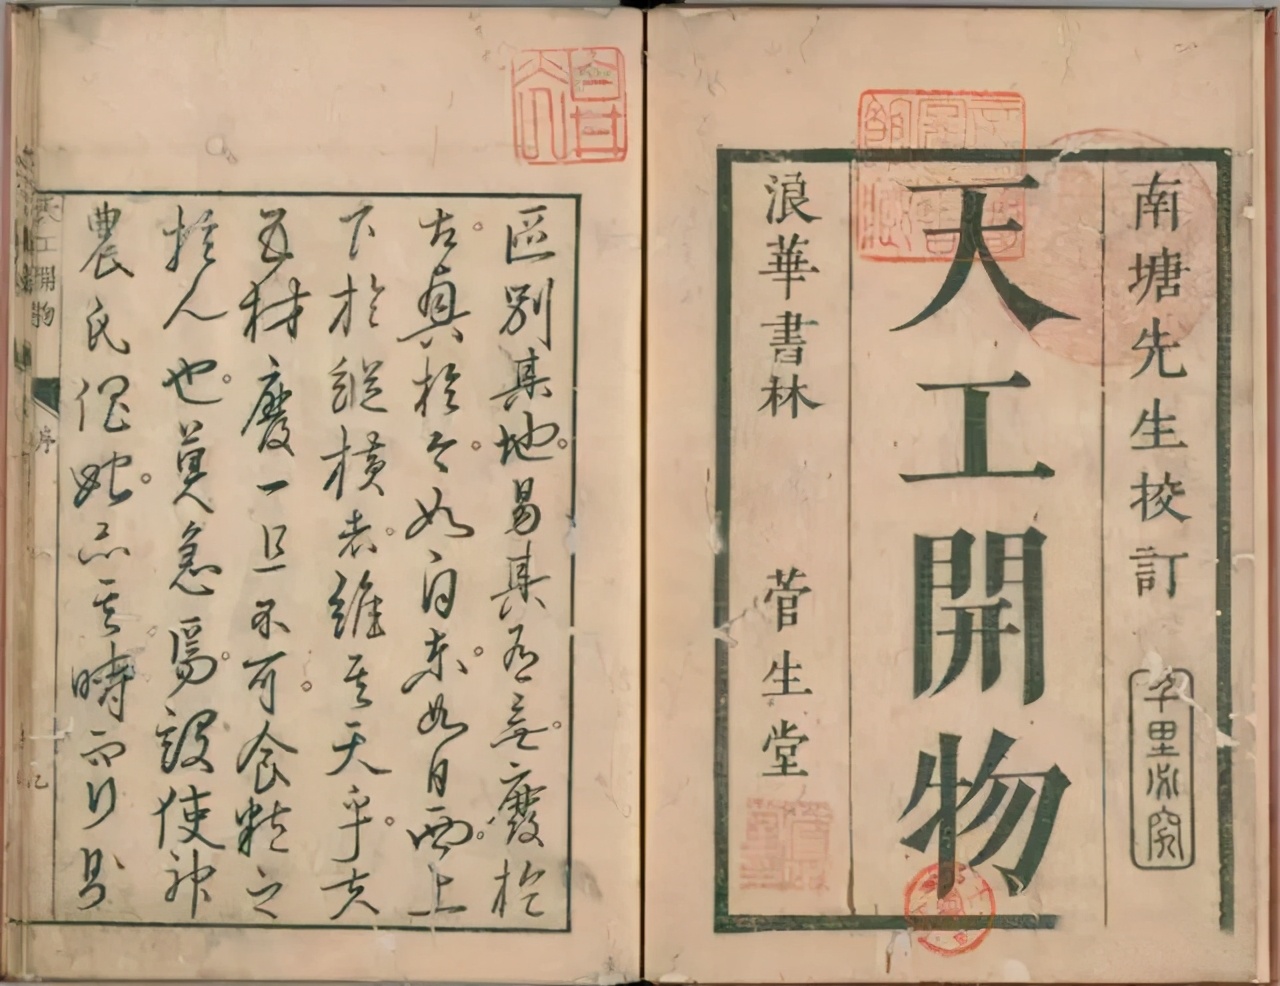 南塘先生校訂
千里必究
天工開物
浪華書林 菅生堂
區別其地。易其有無。廢於
古。具於今。如自東。如自西。上
下於縱橫者。維其天乎。夫
五材廢一且不可。食粒之
於人也。莫急焉。設使神
農氏 始。亦其時而行則
天工開物 序